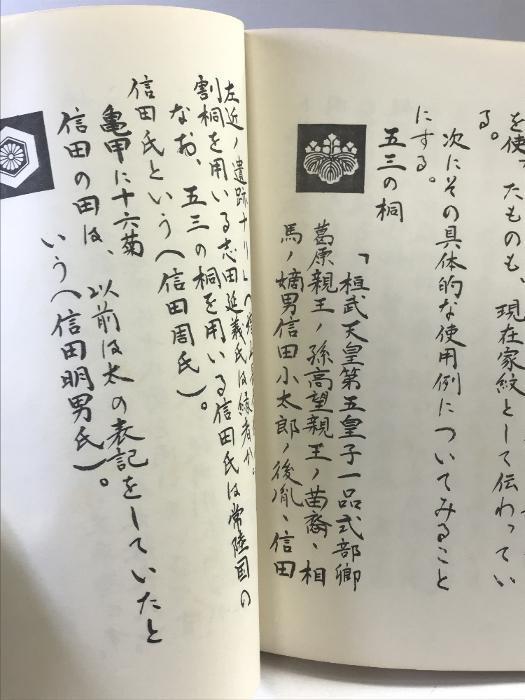 を使ったものも、現在家紋として伝わってい
る。
次にその具体的な使用例についてみること
にする。
五三の桐
「桓武天皇第五皇子一品式部卿
葛原親王ノ孫高望親王ノ苗裔、相
馬ノ嫡男信田小太郎ノ後胤、信田
左近ノ遺跡ナリ
割桐を用いる志田延義氏は縁者か。
なお、五三の桐を用いる信田氏は常陸国の
信田氏という(信田周氏)。
亀甲に十六菊
信田の田は、以前は太の表記をしていたと
いう(信田明男氏)。